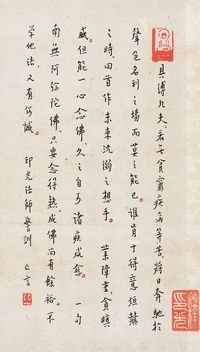 具縛凡夫若無貧窮疾病等苦將日奔馳於
聲色名利之場而莫之能已誰肯于得意烜赫
之時回首作未來沈溺之想乎 業障重貪瞋
盛但能一心念佛久之自可諸疾咸愈 一句
南無阿彌陀佛只要念得熟成佛尚有餘裕不
學他法又有何憾 印光法師警訓 亡言